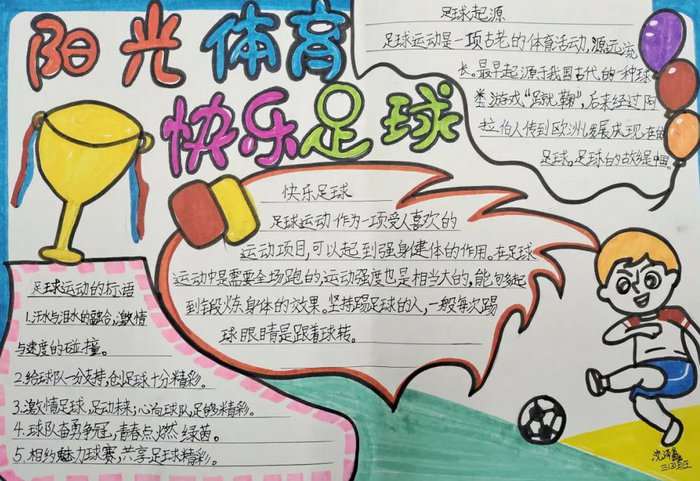 阳光体育
快乐足球
足球起源
足球运动是一项古老的体育活动,源远流
长。最早起源于我国古代的一种球
类游戏“蹴鞠”,后来经过阿
拉伯人传到欧洲,发展成现在的
足球,足球的故乡是中国。
快乐足球
足球运动作为一项受人喜欢的
运动项目,可以起到强身健体的作用。在足球
运动中是需要全场跑的,运动强度也是相当大的,能够起
到锻炼身体的效果。坚持踢足球的人,一般每次踢
球眼睛是跟着球转。
足球运动的标语
1.汗水与泪水的融合,激情
与速度的碰撞。
2.给球队一分支持,创足球十分精彩。
3.激情足球,足动未来;心向球队,足够精彩。
4.球队奋勇争冠,青春点燃绿茵。
5.相约魅力球赛,共享足球精彩。